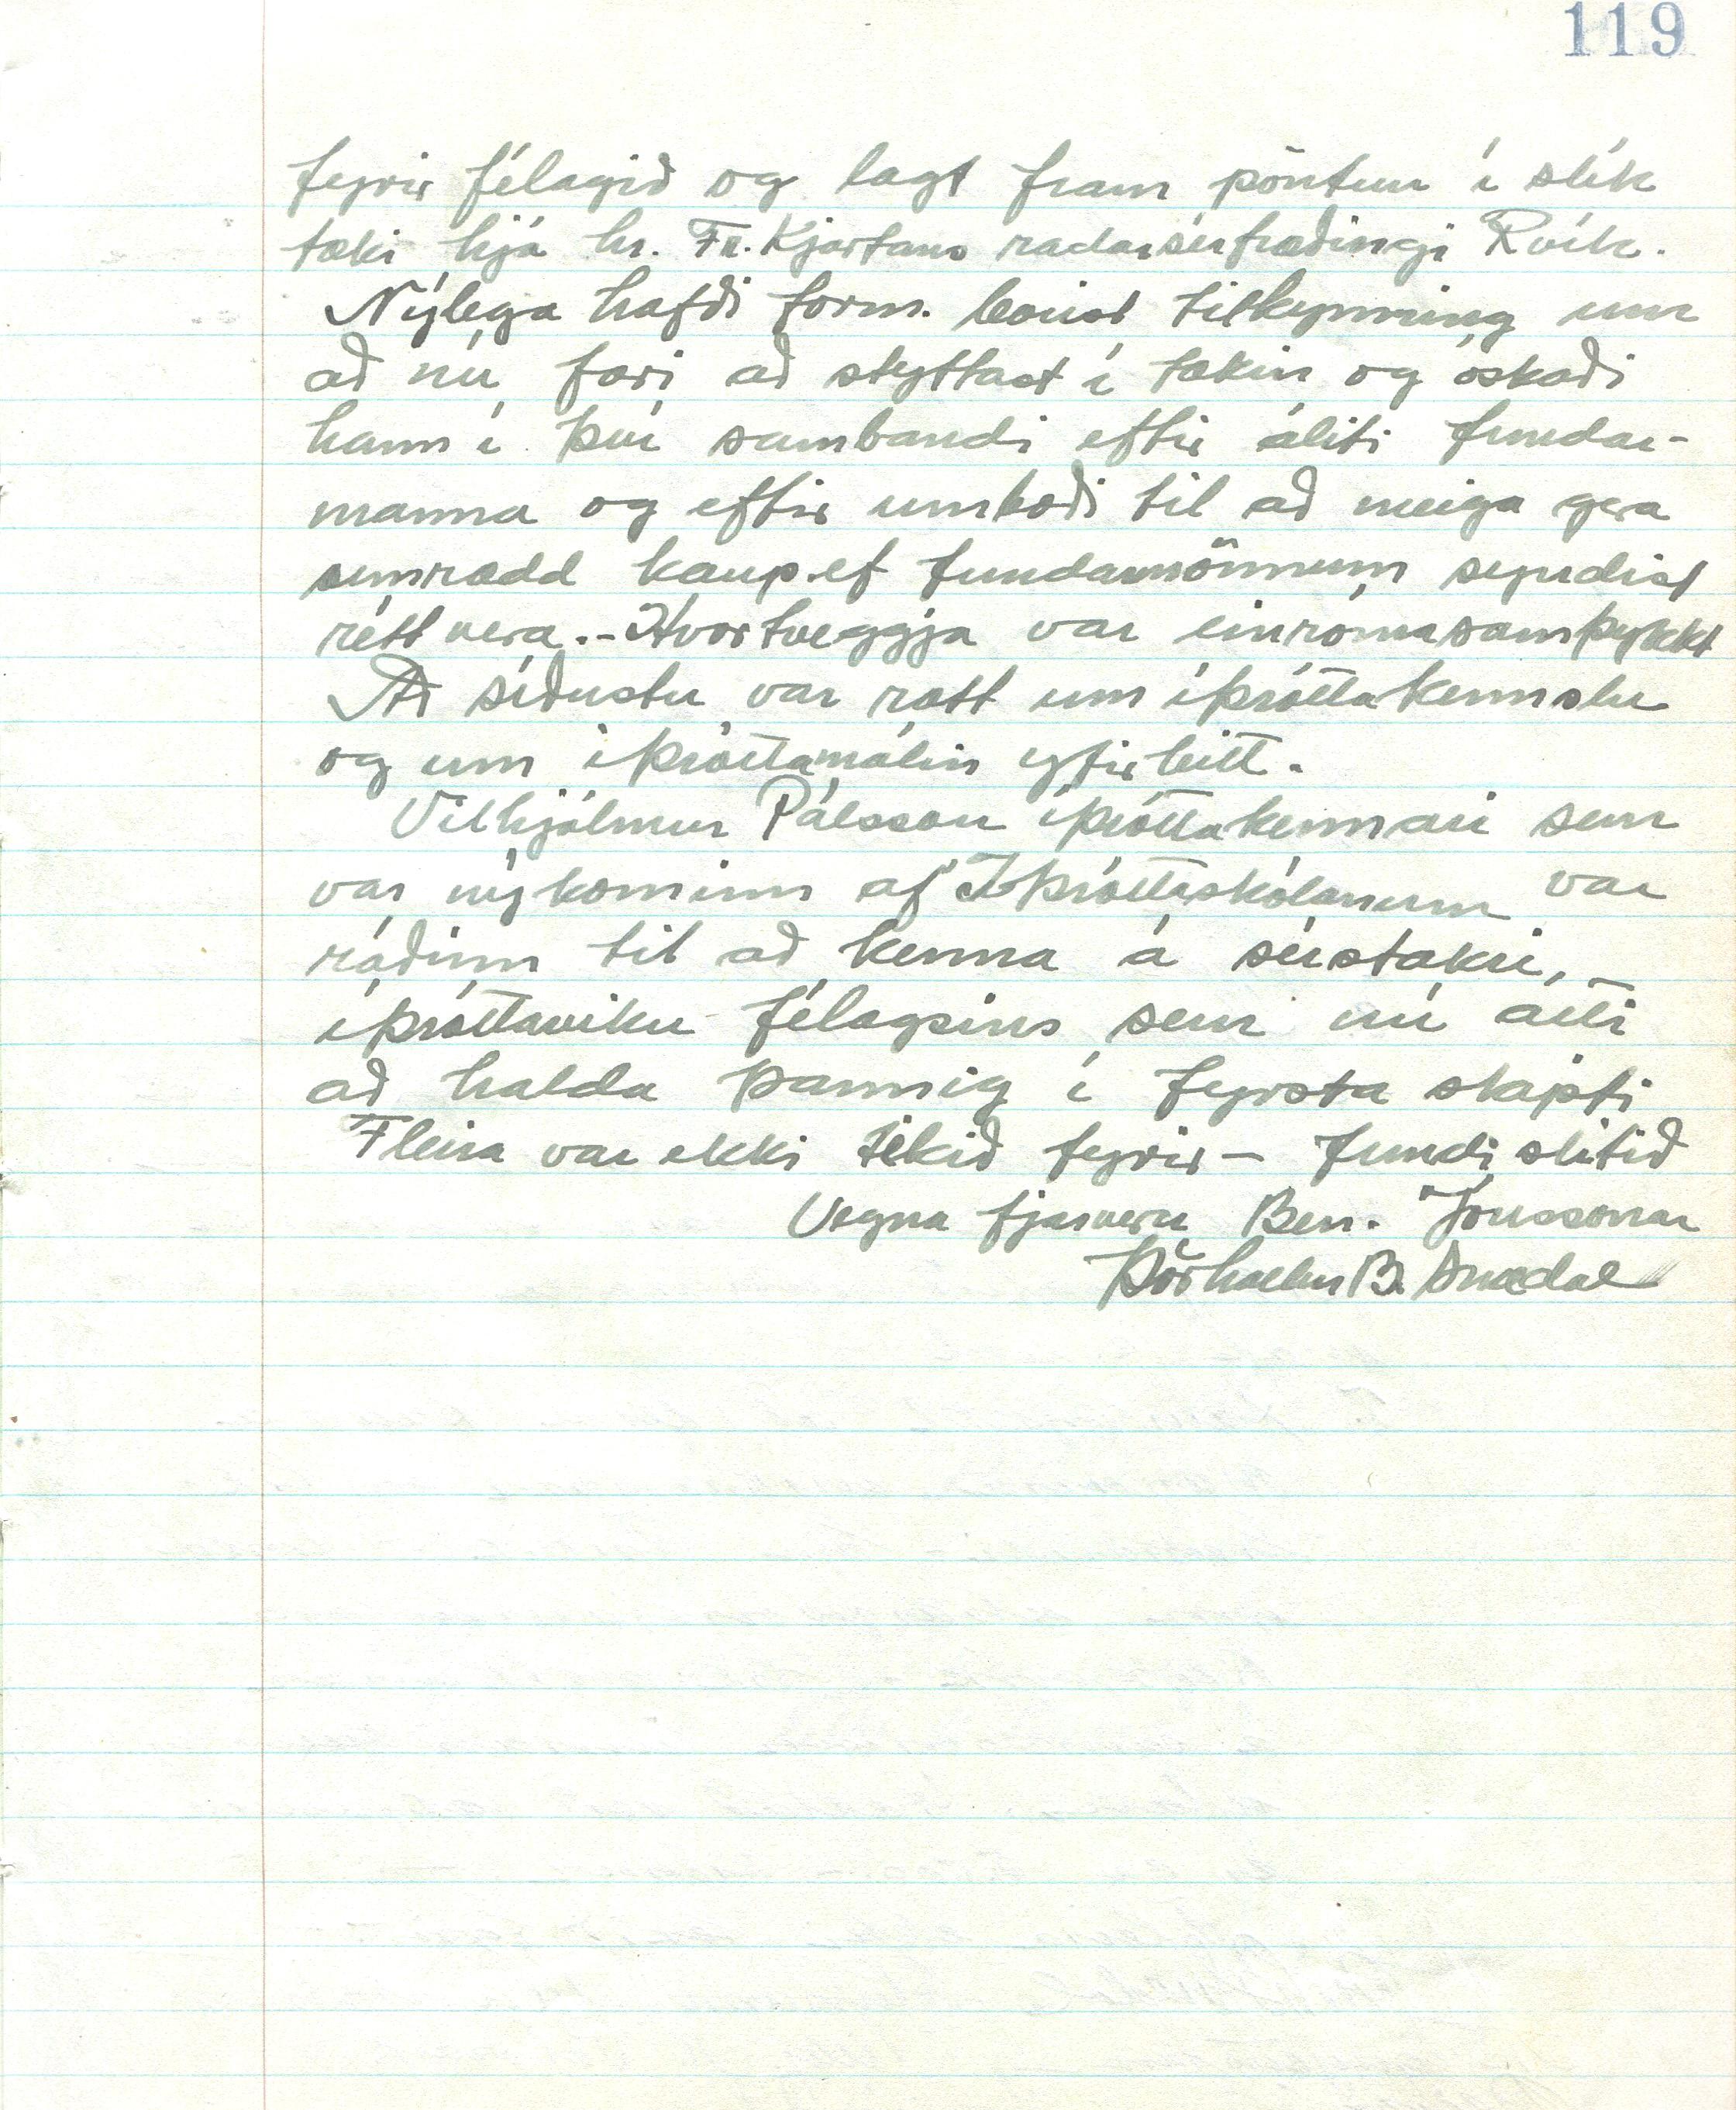 119
fyrir félagið og lagt fram pöntun í slík
tæki hjá hr. Fr. Kjartans radarsérfræðingi Rvík.
Nýlega hafði form. borist tilkynning um
að nú færi að styttast í tækin og óskaði
hann í því sambandi eftir áliti fundar-
manna og eftir umboði til að meiga gera
umrædd kaup ef fundarmönnum syndist
rétt vera. - Hvortveggja var einróma samþykkt
Að síðustu var rætt um íþróttakennslu
og um íþróttamálin yfirleitt.
Vilhjálmur Pálsson íþróttakennari sem
var nýkominn af Íþróttaskólanum var
ráðinn til að kenna á sérstakri,
íþróttaviku félagsins sem nú átti
að halda þannig í fyrsta skipti
Fleira var ekki tekið fyrir - fundi slitið
Vegna fjarveru Ben. Jónssonar
Þórhallur B. Snædal